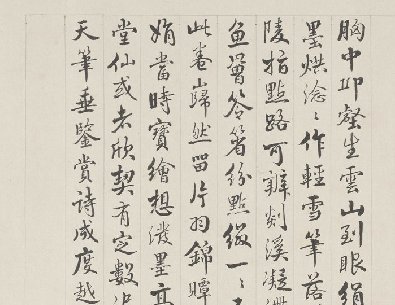 胸中邱壑生雲山到眼絹
墨烘淰〻作輕雪筆落
陵指點路可辨剡溪凝
魚罾笭箵紛點綴一〻
此卷巋然留片羽錦贉
娟當時寶繪想潑墨高
堂仙或者欣契有定數
天筆垂鑒賞詩成度越